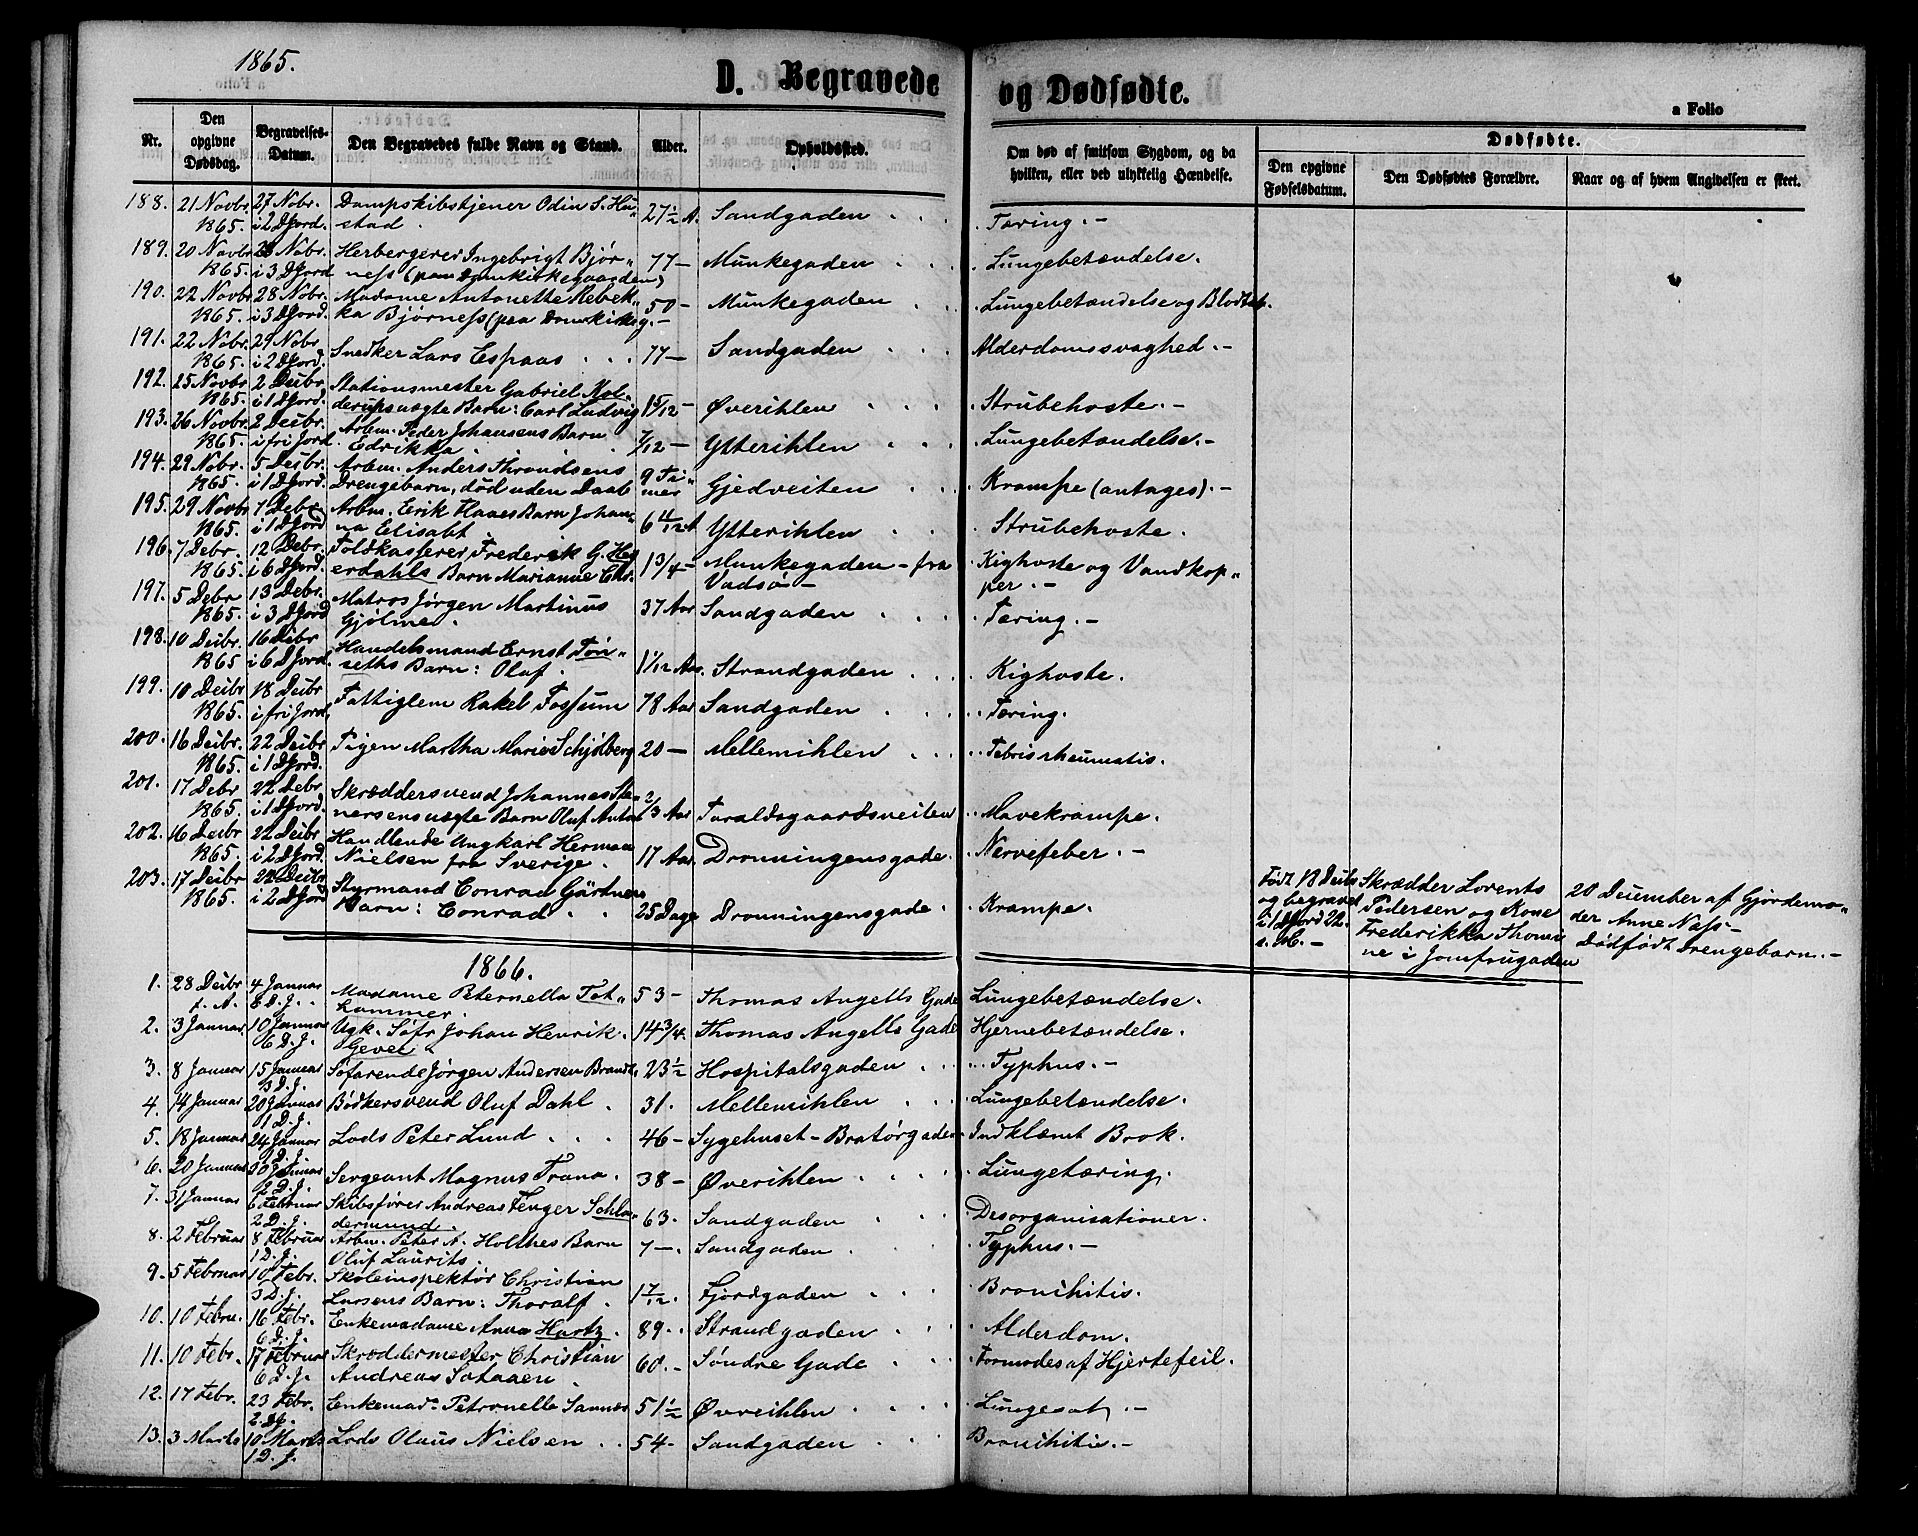 1865.
D. Begravede og Dødfødte.
a Folio
Nr.
Den opgivne Dødsdag.
Begravelses-Datum.
Den Begravedes fulde Navn og Stand.
Alder.
Opholdssted.
Om død af smitsom Sygdom, og da hvilken, eller ved ulykkelig Hændelse.
Dødfødte.
Den opgivne Fødselsdatum.
Den Dødfødtes Forældre.
Naar og af hvem Angivelsen er skeet.
188. 21 Novbr. 27 Nobr. Dampskibstjener Odin S. Hu- 27½ A. Sandgaden Tæring.-
1865. i 2 D Jord. stad.
189. 20 Novbr 28 Nobr. Herbergerer Ingebrigt Bjør- 77- Munkegaden Lungebetændelse.
1865. i 3 D Jord ness (paa Domkirkegaarden)
190. 22 Novbr 28 Nobr. Madame Antonette Rebek- 50- Munkegaden Lungebetændelse og Blodtab.
1865. i 3 D Jord. ka Bjørness (paa Domkirkeg.-
191. 22 Nobr. 29 Nobr Snedker Lars Espaas 77- Sandgaden Alderdomssvaghed.-
1865. i 2 D Jord.
192. 25 Novbr 2 Deibr Stationsmester Gabriel Mol-
1865. i 1 D Jord. derups ægte Barn: Carl Ludvig 1 5/12- Øverihlen Strubehoste.-
193. 26 Novbr. 2 Deibr. Arbm. Peder Johansens Barn
1865. i fri Jord. Edrikka 7/12- Ytterihlen Lungebetændelse.-
194. 29 Nobr. 5 Deibr. Arbm. Anders Throndsens 9 Ti-
1865. i 1 D Jord. Drengebarn, død uden Daab mer Gjedveiten Krampe (antages).-
195. 29 Novbr 7 Debr. Arbm. Erik Haaes Barn Johan-
1865. i 1 D Jord na Elisabt 6 4/12 A Ytterihlen Strubehoste.
196. 7 Debr. 12 Debr. Toldkasserer Frederik G. Heg- 1 3/4- Munkegaden - fra Kighoste og Vandkop-
1865. i 6 D Jord. erdahls Barn Marianne Chr. Vadsø- per.-
197. 5 Debr 13 Debr. Matros Jørgen Martinus 37 Aar Sandgaden Tæring.-
1865. i 3 D Jord Gjølme.
198. 10 Deibr. 16 Deibr Handelsmand Ernst Tøn-
1865 i 6 D Jord. seths Barn: Oluf. 1 1/12 Aar. Strandgaden Kighoste.
199. 10 Deibr 18 Deibr Fattiglem Rakel Fossum 78 Aar Sandgaden Tæring.
1865. i fri Jord.
200. 16 Deibr. 22 Deibr Pigen Martha Marie Schjølberg 20- Mellemihlen Febris rheumatis.
1865. i 1 D Jord.
201. 17 Debr 22 Debr. Skræddersvend Johannes Ste- 2/3 Aar Taraldsgaardsveiten Mavekrampe.
1865. i 1 D Jord. nersens ægte Barn Oluf Anton
202. 16 Deibr 22 Deibr Handlende Ungkarl Herman
1865. i 2 D Jord. Nielsen fra Sverige. 17 Aar. Dronningensgade. Nervefeber.-
203. 17 Deibr 22 Deibr Styrmand Conrad Gärtners
1865. i 2 D Jord Barn: Conrad 25 Dage Dronningensgade. Krampe.
Født 18 Deibr Skrædder Lorents 20 Deiember af Gjordemo-
og begravet Pedersen og Kone der Anne Næss-
i 1 D Jord 22. Frederikka Thomi- Dødfødt Drengebarn.-
s. M.- ne i Jomfrugaden
1866.
1. 28 Deibr 4 Januar Madame Peternella Tet- 53- Thomas Angells Gade Lungebetændelse.
f. A. D. J. kammer.
2. 3 Januar 10 Januar Ugk. Søfr Johan Henrik 14 3/4. Thomas Angells Gade Hjernebetændelse.
6 D. J. Gever
3. 8 Januar 15 Januar Søfarende Jørgen Andersen Brandt. 23½ Hospitalsgaden Typhus.-
3 D. J.
4. 14 Januar 20 Januar Bødkersvend Oluf Dahl. 31. Mellemihlen Lungebetændelse.
1 D. J.
5. 18 Januar 24 Januar Lods Peter Lund 46- Sygehuset - Bratørgaden Indklæmt Brok.
D. J.
6. 20 Januar 30 Januar Sergeant Magnus Trana. 38- Øverihlen Lungetæring.
D. J.
7. 31 Januar 6 Februar Skibsfører Andreas Fenger Schla-
2 D. J. dermund. 63. Sandgaden Desorganisationer.
8. 2 Februar 8 Februar Arbm. Peter A. Holthes Barn 7-. Sandgaden Typhus.-
1 D. J. Oluf Laurits
9. 5 Februar 10 Febr. Skoleinspektør Christian
3 D. J. Larsens Barn: Thoralf. 1 7/12. Fjordgaden Bronchitis.
10. 10 Febru. 16 Febr. Enkemadame Anna Hartz. 89. Strandgaden Alderdom.
6 D. J.
11. 10 Febr. 17 Februar Skræddermester Christian 60.- Søndre Gade Formodes af Hjertefeil.
6 D. J. Andreas Sotaaen
12. 17 Febr. 23 Febr. Enkemad. Petronelle Sannes 51½ Øvreihlen Lungesot.-
2 D J.
13. 3 Marts 10 Marts Lods Olaus Nielsen 54- Sandgaden Bronchitis.-
1 D. J.